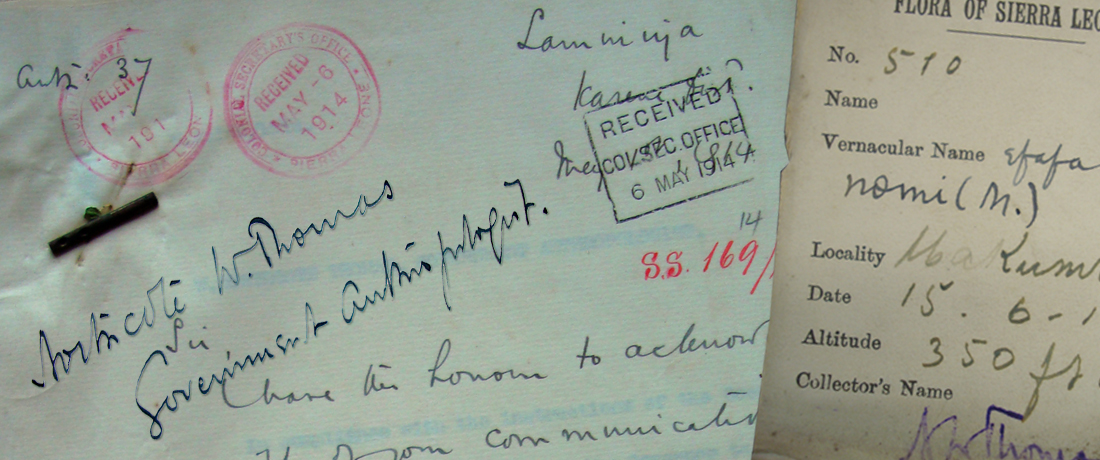 Anth. 37
RECEIVED
MAY
191
SIERRA LEON
COLONIAL SECRETARY'S OFFICE
RECEIVED
MAY -6
1914
SIERRA LEONE
Laminiya
RECEIVED
COL. SEC. OFFICE
6 MAY 1914
14
S.S. 169/
Northcote W. Thomas
Government Anthropologist.
Sir
I have the honour to acknow
of your communicatio
FLORA OF SIERRA LEO
No. 510
Name
Vernacular Name efafa
nomi (M.)
Locality MaKum
Date 15. 6-1
Altitude 350 ft
Collector's Name
NW Thomas